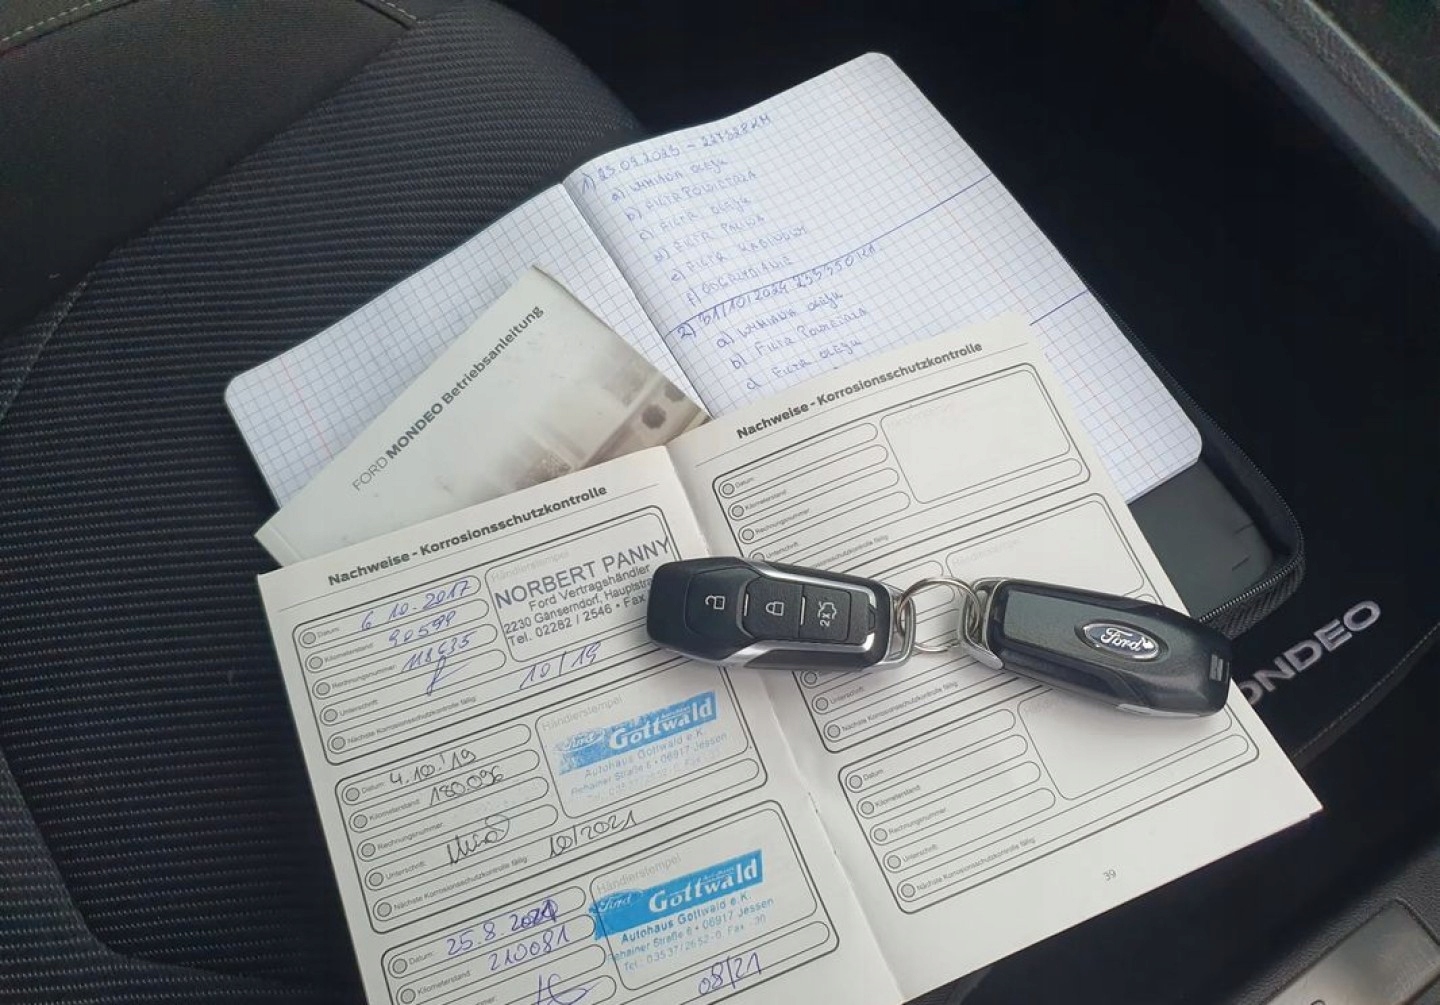 1) 25.09.2023 - 227328KM
a) WYMIANA OLEJU
b) FILTR POWIETRZA
c) FILTR OLEJU
d) FILTR PALIWA
e) FILTR KABINOWY
f) ODGRZYBIANIE
2) 31/10/2024 255550KM
a) WYMIANA OLEJU
b) FILTR POWIETRZA
c) FILTR OLEJU
FORD MONDEO Betriebsanleitung
Nachweise - Korrosionsschutzkontrolle
Datum: 6 10. 2017
Kilometerstand: 90590
Rechnungsnummer: 118635
Unterschrift:
Nächste Korrosionsschutzkontrolle fällig: 10/19
Händlerstempel
NORBERT PANNY
Ford Vertragshändler
2230 Gänserndorf, Hauptstra
Tel. 02282 / 2546 • Fax
Datum: 4.10.'19
Kilometerstand: 180.096
Rechnungsnummer:
Unterschrift:
Nächste Korrosionsschutzkontrolle fällig: 10/2021
Händlerstempel
Ford Gottwald
Autohaus Gottwald e.K.
Rehainer Straße 6 • 06917 Jessen
Datum: 25.8.2021
Kilometerstand: 210081
08/21
Händlerstempel
Ford Gottwald
Autohaus Gottwald e.K.
Rehainer Straße 6 • 06917 Jessen
Tel.: 03537/2652-0, Fax -30
Nachweise - Korrosionsschutzkontrolle
Datum:
Kilometerstand:
Rechnungsnummer:
Unterschrift:
Korrosionsschutzkontrolle fällig
Händlerstempel
Unterschrift:
Nächste Korrosionsschutzkontrolle fällig:
Datum:
Kilometerstand:
Rechnungsnummer:
Unterschrift:
Nächste Korrosionsschutzkontrolle fällig:
39
2x
Ford
ONDEO